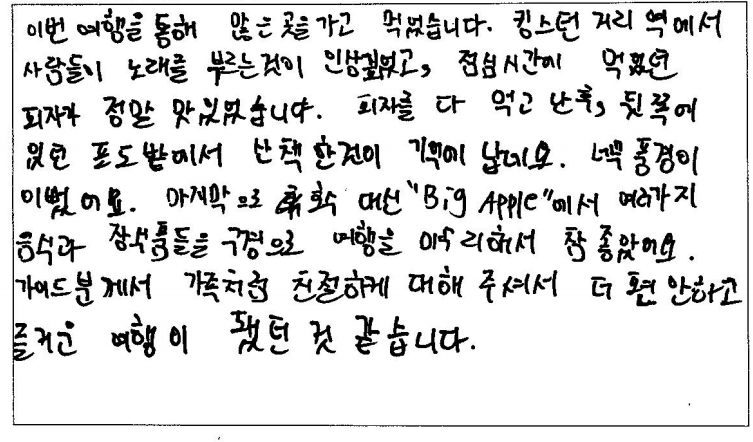 이번 여행을 통해 많은 곳을 가고 먹었습니다. 킹스턴 거리 역에서
사람들이 노래를 부르는것이 인상깊었고, 점심시간에 먹었던
피자가 정말 맛있었습니다. 피자를 다 먹고 난후, 뒷쪽에
있던 포도밭에서 산책한것이 기억에 남네요. 너무 풍경이
이뻤어요. 마지막으로 폭화수 대신 "Big Apple"에서 여러가지
음식과 장식품들을 구경으로 여행을 마무리해서 참 좋았어요.
가이드분께서 가족처럼 친절하게 대해 주셔서 더 편안하고
즐거운 여행이 됐던 것 같습니다.